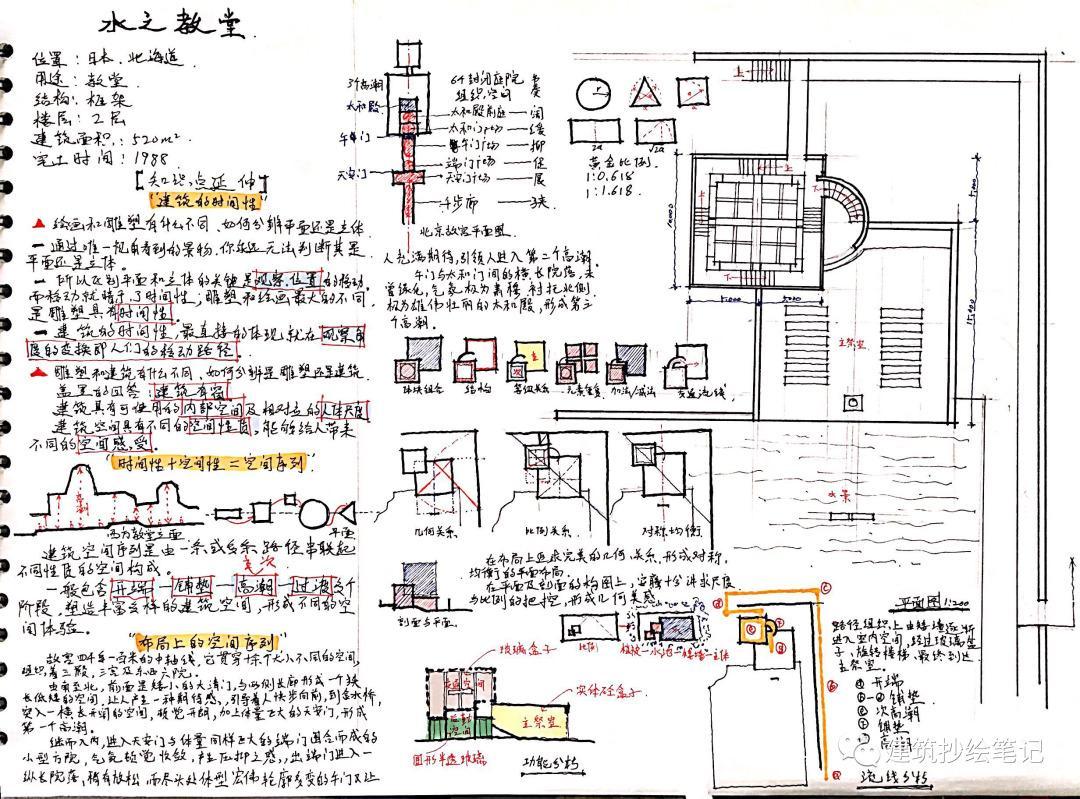 水之教堂
位置：日本.北海道
用途：教堂
结构：框架
楼层：2层
建筑面积：520m²
完工时间：1988
[知识点延伸]
"建筑的时间性"
绘画和雕塑有什么不同、如何分辨平面还是立体
一 通过唯一视角看到的景物，你永远无法判断其是
平面还是立体。
一 所以区别平面和立体的关键是观察位置的移动
而移动就赋予了时间性，雕塑和绘画最大的不同
是雕塑具有时间性。
一 建筑的时间性，最直接的体现就在观察角
度的变换即人们的移动路径。
雕塑和建筑有什么不同、如何分辨是雕塑还是建筑
盖里的回答：建筑有窗
建筑具有可使用的内部空间及相对应的人体尺度
建筑空间具有不同的空间性质，能够给人带来
不同的空间感受。
"时间性+空间性=空间序列"
高潮
西方教堂立面
平面
建筑空间序列是由一条或多条路径串联起
不同性质的空间构成。
高次
一般包含开端—铺垫—高潮—过渡多个
阶段，塑造丰富多样的建筑空间，形成不同的空
间体验。
"布局上的空间序列"
组织，有三殿，三宫及东西六院。
由南至北，前面是矮小的大清门，与两侧长廊形成一个狭
长低矮的空间，让人产生一种期待感，引导着人快步向前，到金水桥，
突入一横长开阔的空间，视觉开朗，加上体量巨大的天安门，形成
第一个高潮。
继而入内，进入天安门与体量同样巨大的端门围合而成的
小型方院，气氛顿觉收敛，产生压抑之感，出端门进入一
纵长院落，稍有放松，而尽头处体型宏伟轮廓多变的午门又让
3个高潮
太和殿
午门
天安门
6个封闭庭院
组织空间
太和殿前庭
太和门广场
午门广场
端门广场
天安门广场
千步廊
阔
缓
抑
促
展
狭
北京故宫平面图.
人充满期待，引领人进入第二个高潮。
午门与太和门间的横长院落，未
曾绿化，气氛极为肃穆，衬托北侧
极为雄伟壮丽的太和殿，形成第三
个高潮。
黄金比例.
1:0.618
1:1.618.
体块组合
结构
等级关系
元素重复
加法/减法
交通流线
几何关系
比例关系
对称.均衡
在布局上追求完美的几何关系，形成对称、
均衡的平面布局。
在平面及剖面的构图上，安藤十分讲求尺度
与比例的把控，形成几何美感
剖面与平面
比例
植被—水池—矮墙—主体
玻璃盒子
实体砼盒子
主祭室
圆形半透玻璃
功能分析
上
下
主祭室
水景
平面图1:200
路径组织上由矮墙逐渐
进入室内空间，经过玻璃盒
子，旋转楼梯，最终到达
主祭室。
开端
铺垫
次高潮
铺垫
高潮
流线分析
建筑抄绘笔记